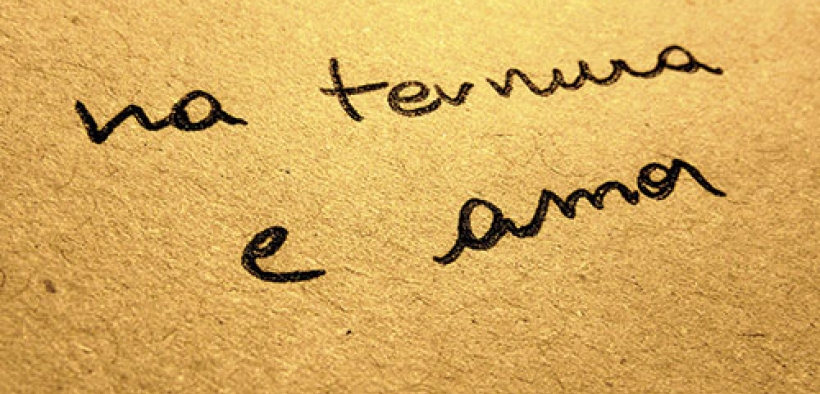 na ternura
e amor